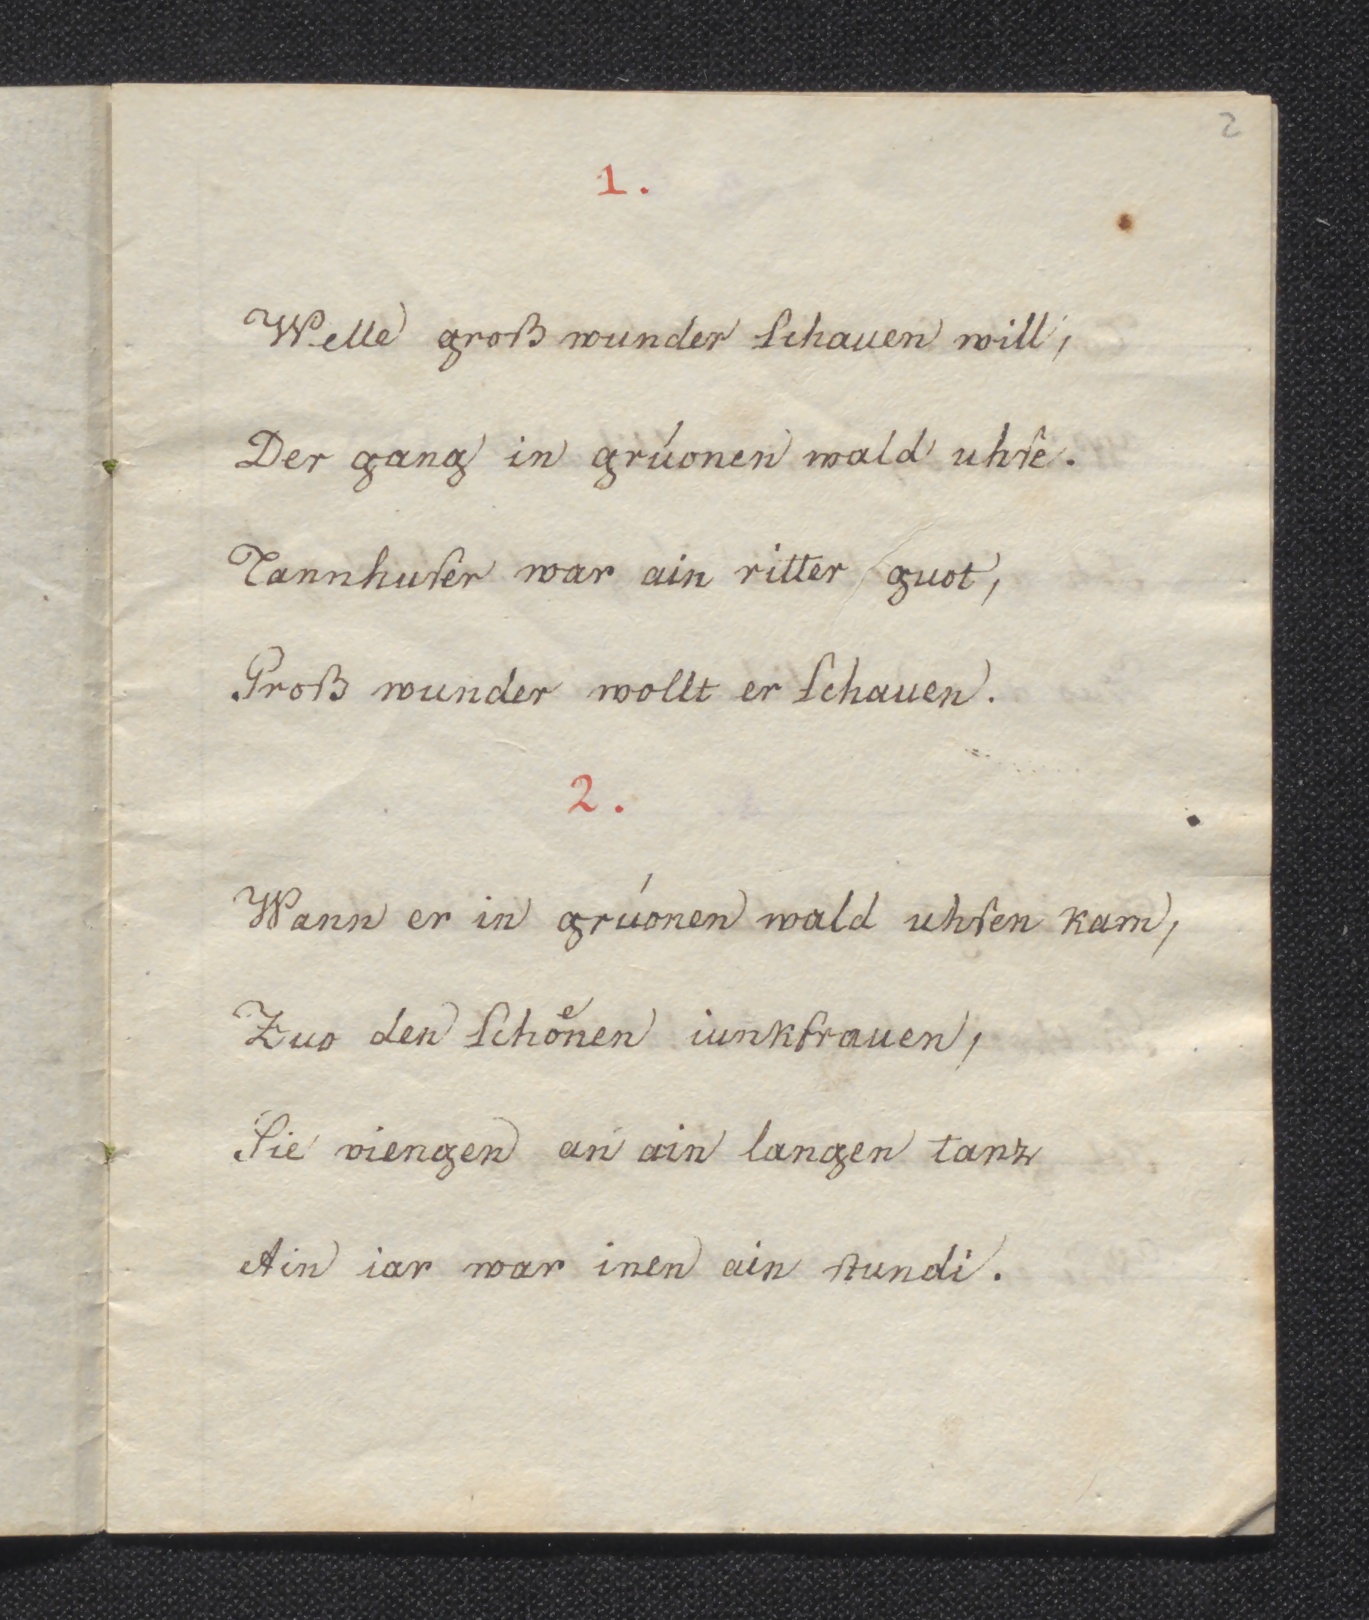 2
1.
Welle groß wunder ſchauen will,
Der gang in grúonen wald uhſe.
Tannhuſer war ain ritter guot,
Groß wunder wollt er ſchauen.
2.
Wann er in grúonen wald uhſen kam,
Zuo den ſchoͤnen iunkfrauen,
Sie viengen an ain langen tanz
Ain iar war inen ain ſtundi.